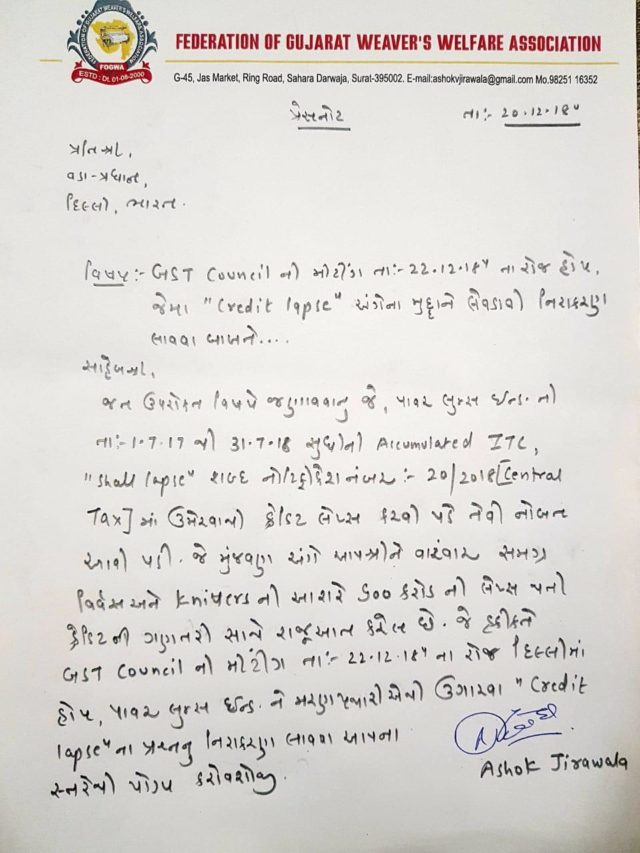 FEDERATION OF GUJARAT WEAVER'S WELFARE ASSOCIATION
FOGWA
ESTD : Dt. 01-08-2000
FEDERATION OF GUJARAT WEAVER'S WELFARE ASSOCIATION
G-45, Jas Market, Ring Road, Sahara Darwaja, Surat-395002. E-mail:ashokvjirawala@gmail.com Mo.98251 16352
પ્રેસનોટ તા:- 20.12.18
પ્રતિશ્રી,
વડા-પ્રધાન,
દિલ્લી, ભારત.
વિષય:- GST Council ની મીટીંગ તા:- 22.12.18 ના રોજ હોય,
જેમા "Credit lapse" અંગેના મુદ્દાને લેવડાવી નિરાકરણ
લાવવા બાબતે....
સાહેબશ્રી,
જત ઉપરોક્ત વિષયે જણાવવાનુ જે, પાવર લુમ્સ ઈન્ડ. ની
તા:-1.7.17 થી 31.7.18 સુધીની Accumulated ITC,
"shall lapse" શબ્દ નોટિફીકેશન નંબર :- 20/2018[Central
Tax]માં ઉમેરવાથી ક્રેડિટ લેપ્સ કરવી પડે તેવી નોબત
આવી પડી. જે મુંજવણ અંગે આપશ્રીને વારંવાર સમગ્ર
વિવર્સ અને Knitters ની આશરે 600 કરોડ ની લેપ્સ થતી
ક્રેડિટની ગણતરી સાથે રાજૂઆત કરેલ છે. જે હકીકતે
GST Council ની મીટીંગ તા:- 22.12.18 ના રોજ દિલ્લીમાં
હોય, પાવર લુમ્સ ઈન્ડ. ને મરણપથારીએથી ઉગારવા "Credit
lapse" ના પ્રશ્નનુ નિરાકરણ લાવવા આપના
સ્તરેથી યોગ્ય કરાવશોજી.
Ashok Jirawala